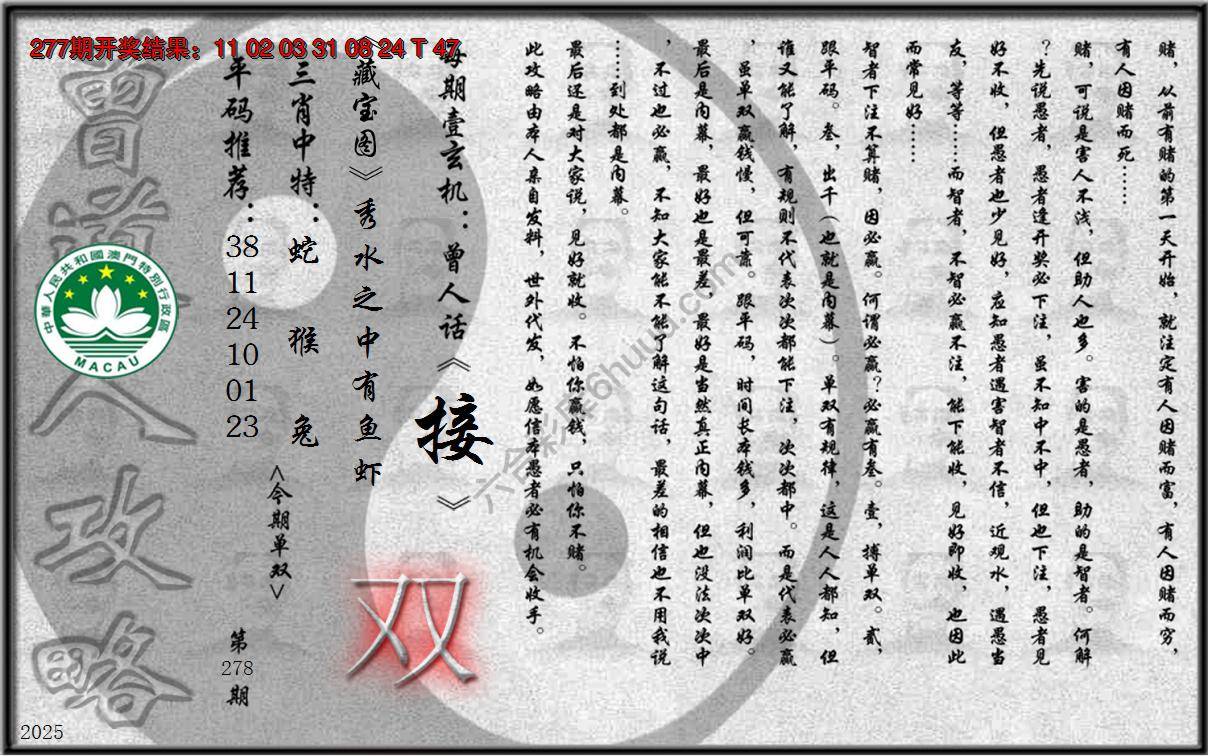 277期开奖结果：11 02 03 31 08 24 T 47
赌，从前有赌的第一天开始，就注定有人因赌而富，有人因赌而穷，
有人因赌而死……
赌，可说是害人不浅，但助人也多。害的是愚者，助的是智者。何解
？先说愚者，愚者逢开奖必下注，虽不知中不中，但也下注，愚者见
好不收，但愚者也少见好，应知愚者遇害智者不信，近观水，遇愚当
友，等等……而智者，不智必赢不注，能下能收，见好即收，也因此
而常见好……
智者下注不算赌，因必赢。何谓必赢？必赢有叁。壹，搏单双。贰，
跟平码。叁，出千（也就是内幕）。单双有规律，这是人人都知，但
谁又能了解，有规则不代表次次都能下注，次次都中。而是代表必赢
，虽单双赢钱慢，但可靠。跟平码，时间长本钱多，利润比单双好。
最后是内幕，最好也是最差，最好是当然真正内幕，但也没法次次中
，不过也必赢，不知大家能不能了解这句话，最差的相信也不用我说
……到处都是内幕。
最后还是对大家说，见好就收。不怕你赢钱，只怕你不赌。
此攻略由本人亲自发料，世外代发，如愿信本愚者必有机会收手。
每期壹玄机：曾人话《接》
《藏宝图》秀水之中有鱼虾
双
三肖中特：蛇 猴 兔
<今期单双>
平码推荐：38 11 24 10 01 23
第278期
曾道人攻略
中華人民共和國澳門特別行政區
MACAU
六合彩库6huuu.com
2025